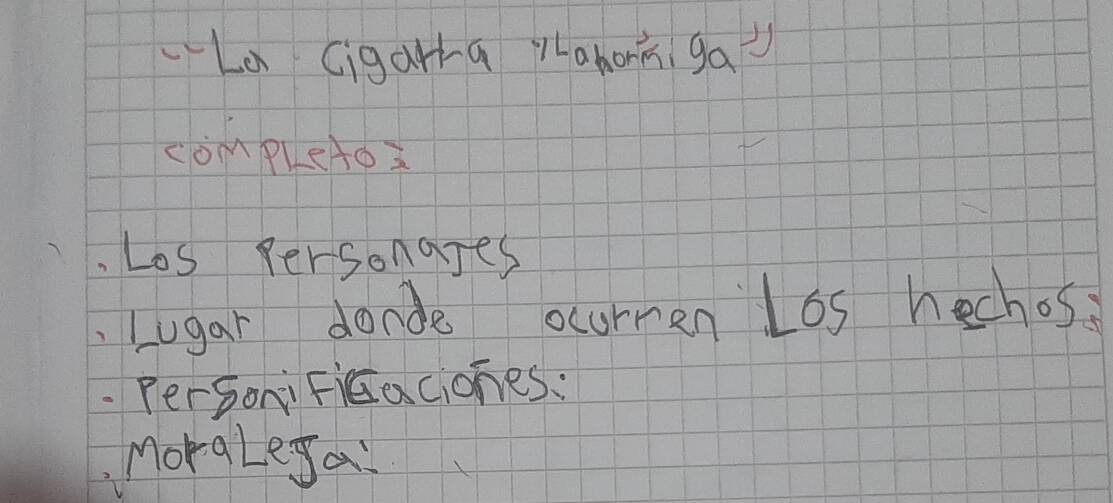 "La Cigarra y La hormiga"
completo:
. Los Personajes
. Lugar donde ocurren Los hechos:
- Personificaciones:
. Moraleja: